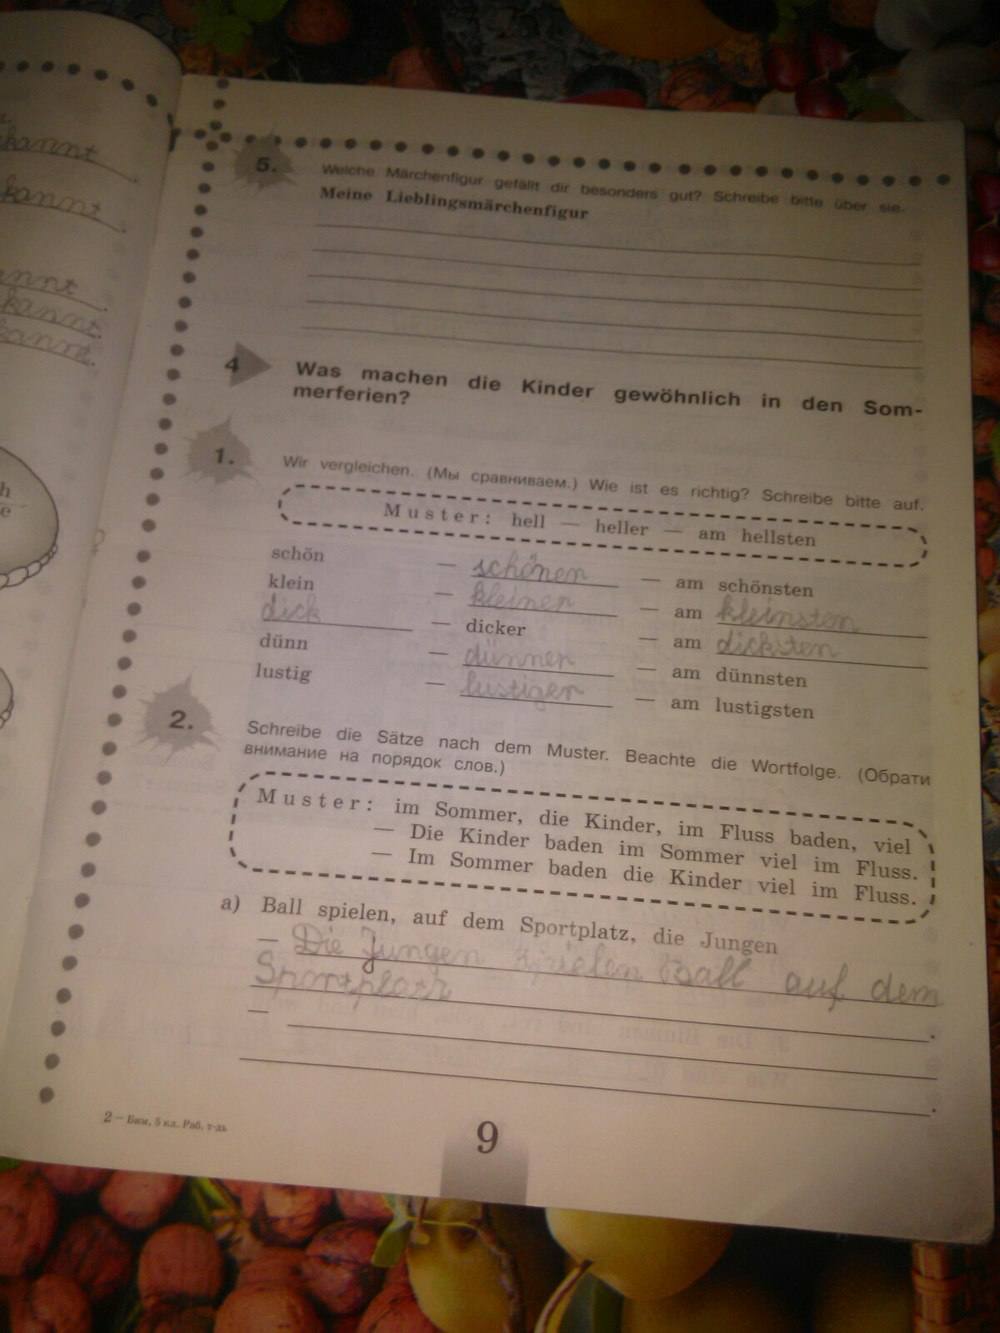 kannt
kannt
kannt.
kannt.
5. Welche Märchenfigur gefällt dir besonders gut? Schreibe bitte über sie.
Meine Lieblingsmärchenfigur
4 Was machen die Kinder gewöhnlich in den Som-
merferien?
1. Wir vergleichen. (Мы сравниваем.) Wie ist es richtig? Schreibe bitte auf.
Muster: hell — heller — am hellsten
schön — schönen — am schönsten
klein — kleiner — am kleinsten
dick — dicker — am dicksten
dünn — dünner — am dünnsten
lustig — lustiger — am lustigsten
2. Schreibe die Sätze nach dem Muster. Beachte die Wortfolge. (Обрати
внимание на порядок слов.)
Muster: im Sommer, die Kinder, im Fluss baden, viel
— Die Kinder baden im Sommer viel im Fluss.
— Im Sommer baden die Kinder viel im Fluss.
a) Ball spielen, auf dem Sportplatz, die Jungen
— Die Jungen spielen Ball auf dem
Sportplatz.
—
2 – Бим, 5 кл. Раб. т-дь
9